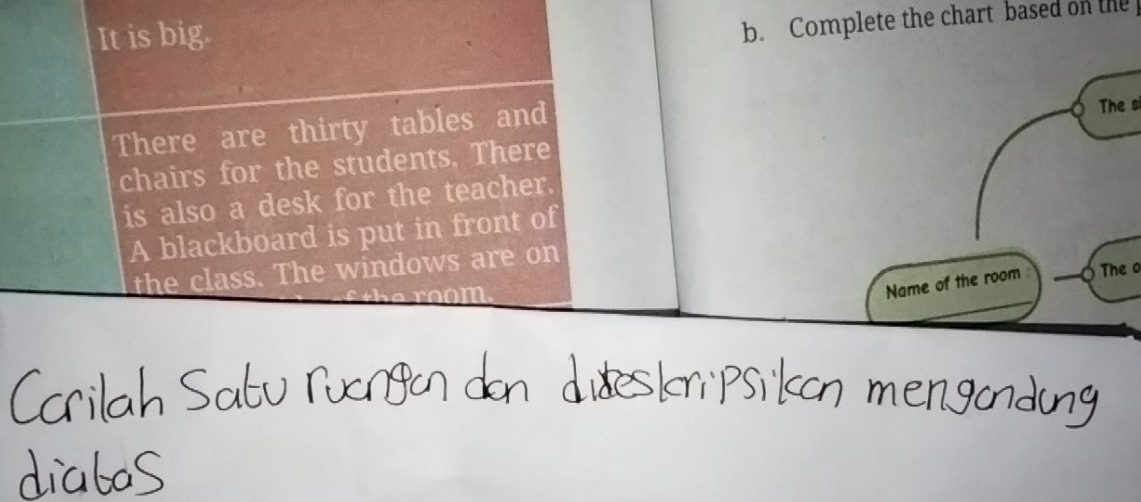 It is big.
There are thirty tables and
chairs for the students. There
is also a desk for the teacher.
A blackboard is put in front of
the class. The windows are on
of the room.
b. Complete the chart based on the
The
Name of the room :
The
Carilah Satu ruangan dan dideskripsikan mengandung
diatas